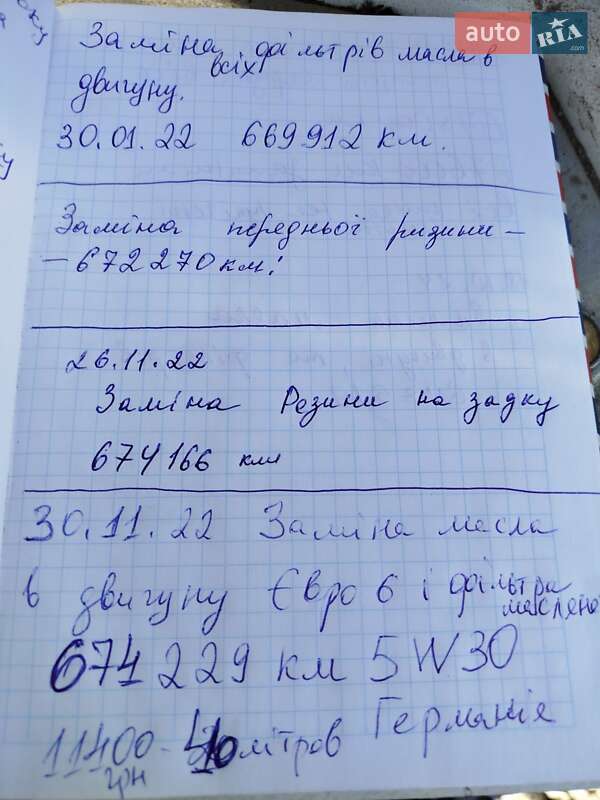 auto RIA.com
Заміна всіх фільтрів масла в
двигуну.
30.01.22 669912 км.
Заміна передньої ризини –
– 672270 км!
26.11.22
Заміна Резини на задку
674166 км
30.11.22 Заміна масла
в двигуну Євро 6 і фільтра
масляно
674229 км 5W30
11400 - літров Германія
грн